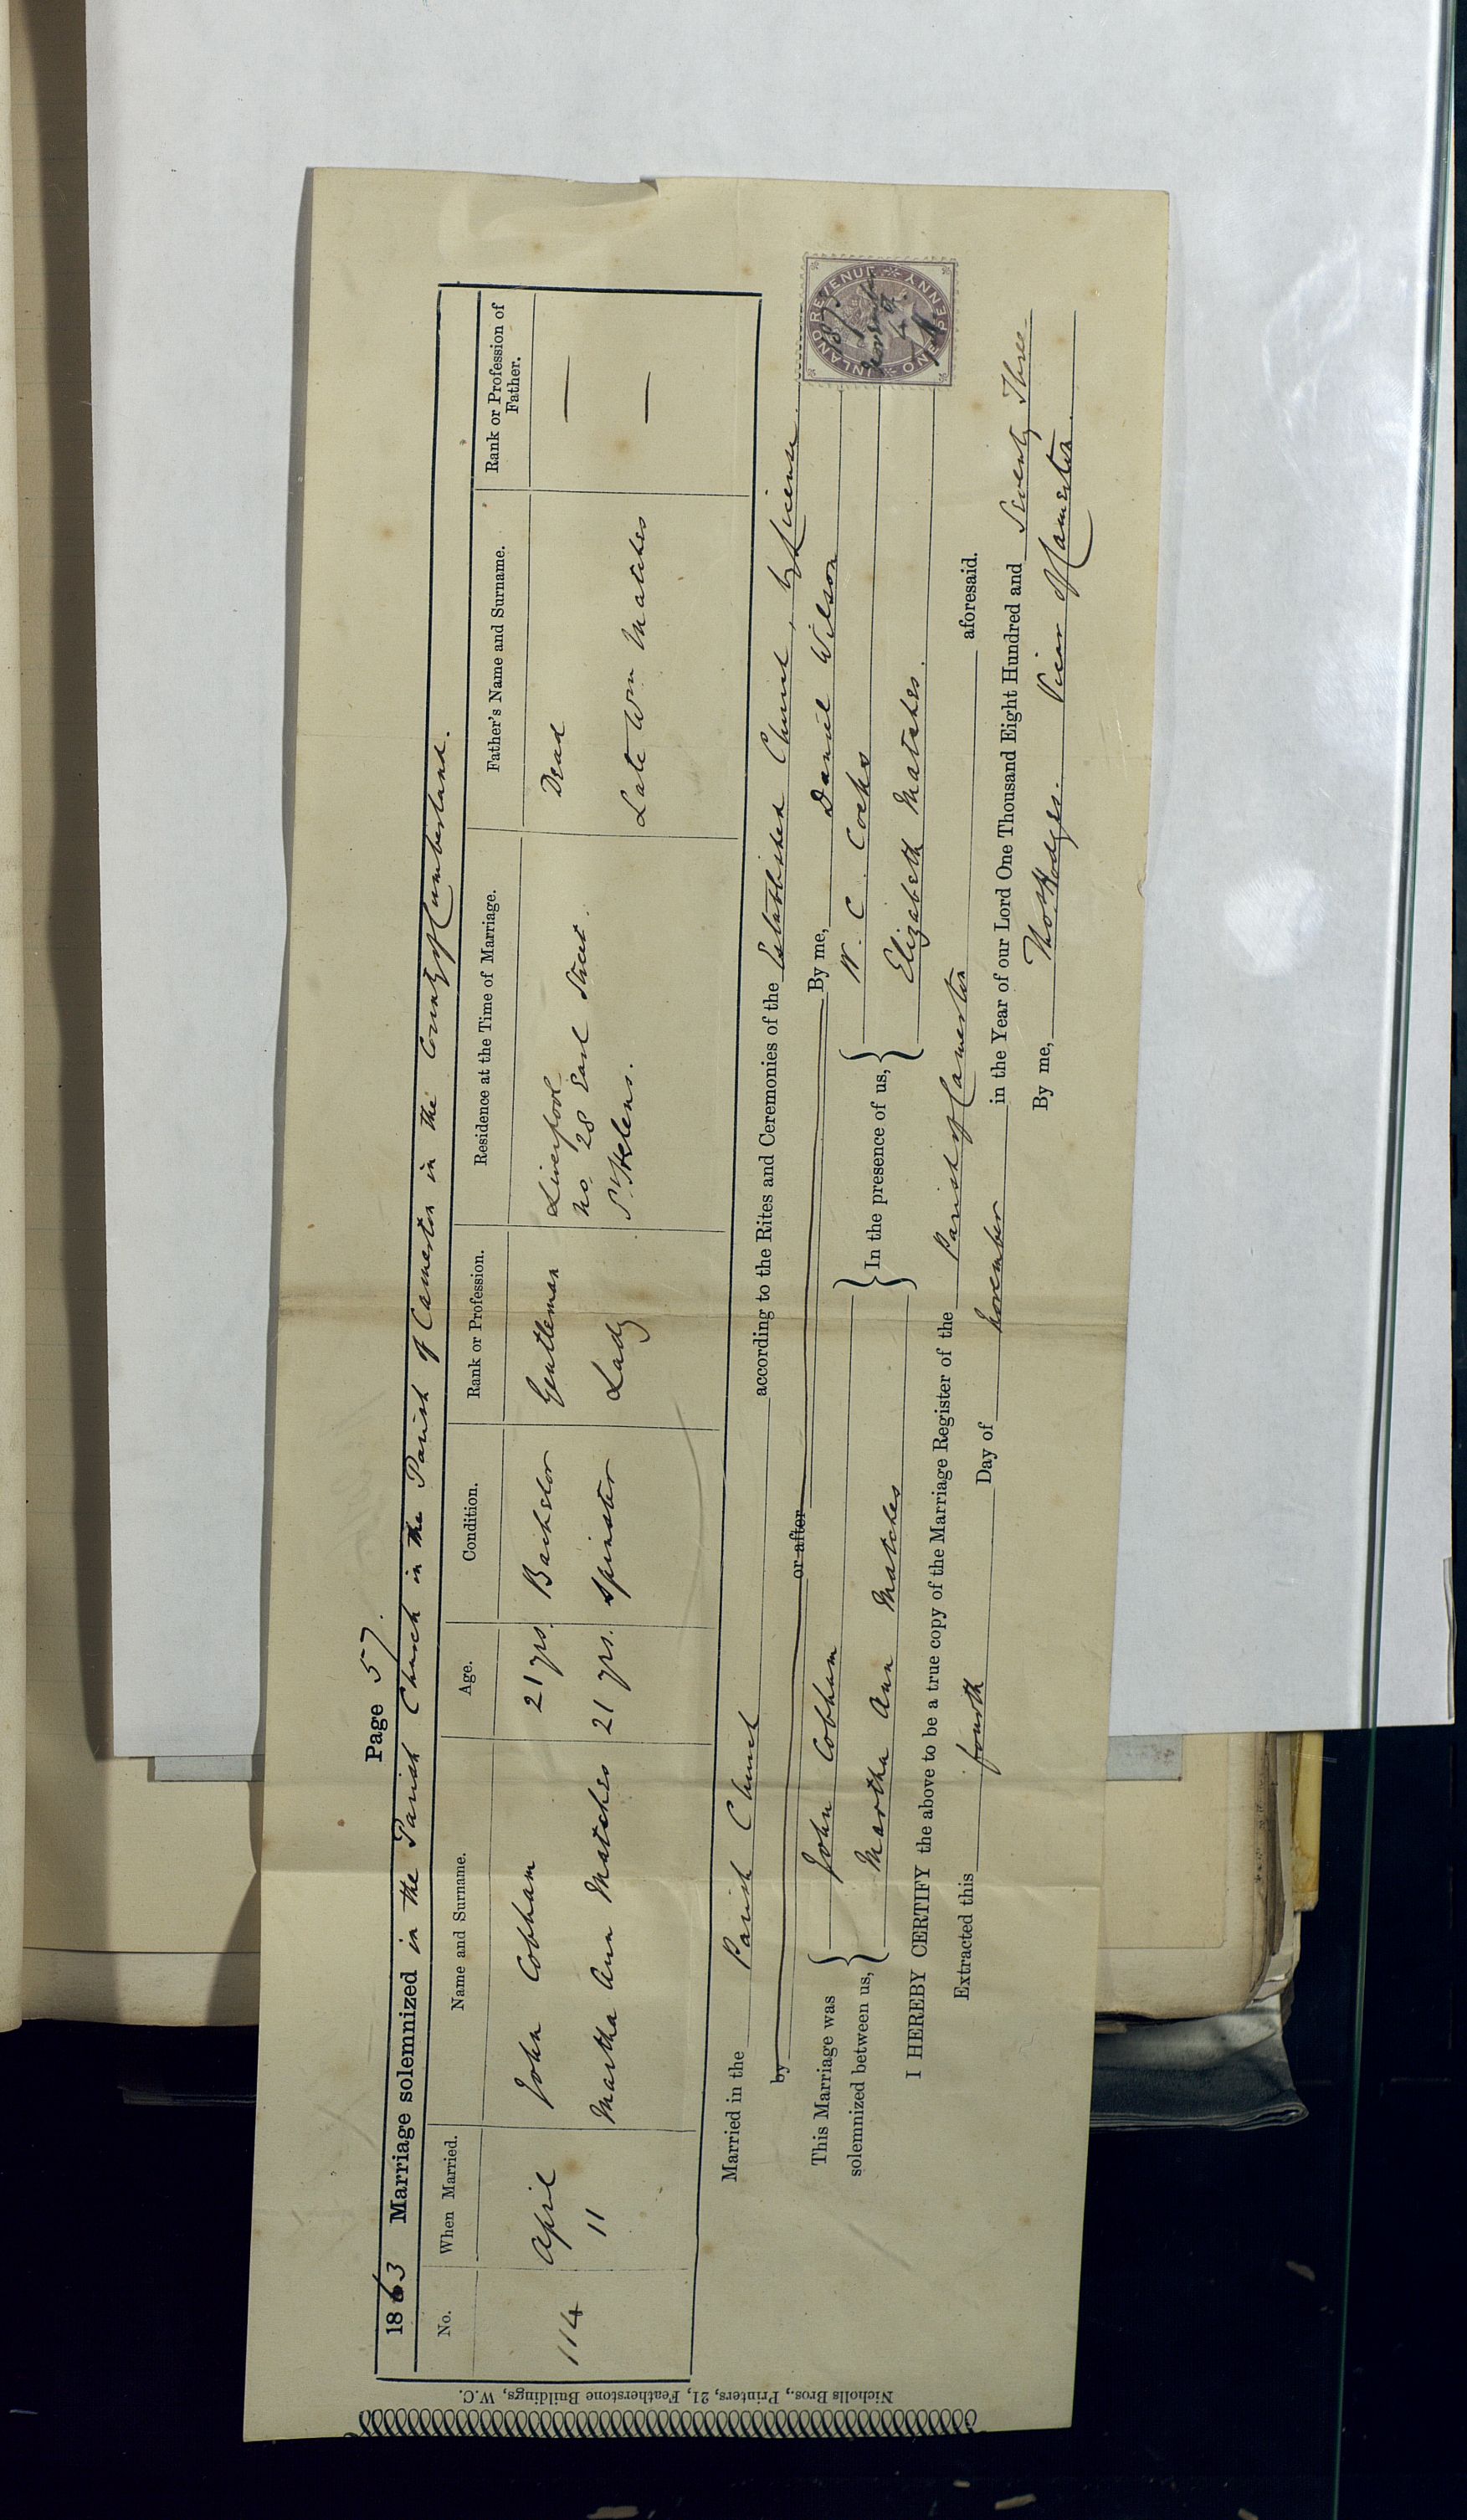 Page 57.
1863 Marriage solemnized in the Parish Church in the Parish of Camerton in the County of Cumberland.
No. When Married. Name and Surname. Age. Condition. Rank or Profession. Residence at the Time of Marriage. Father's Name and Surname. Rank or Profession of Father.
114 April 11 John Cobham 21 yrs. Bachelor Gentleman Liverpool No. 28 Earl Street. Dead —
Martha Ann Matches 21 yrs. Spinster Lady St Helens. Late Wm Matches —
Married in the Parish Church according to the Rites and Ceremonies of the Established Church, by License.
by or after By me, Daniel Wilson
This Marriage was solemnized between us, { John Cobham } In the presence of us, { W. C. Cocks
Martha Ann Matches Elizabeth Matches.
I HEREBY CERTIFY the above to be a true copy of the Marriage Register of the Parish of Camerton aforesaid.
Extracted this fourth Day of November in the Year of our Lord One Thousand Eight Hundred and Seventy Three
By me, Thos Hodges. Vicar of Camerton.
INLAND REVENUE
ONE PENNY
1873
November
4
Nicholls Bros., Printers, 21, Featherstone Buildings, W.C.